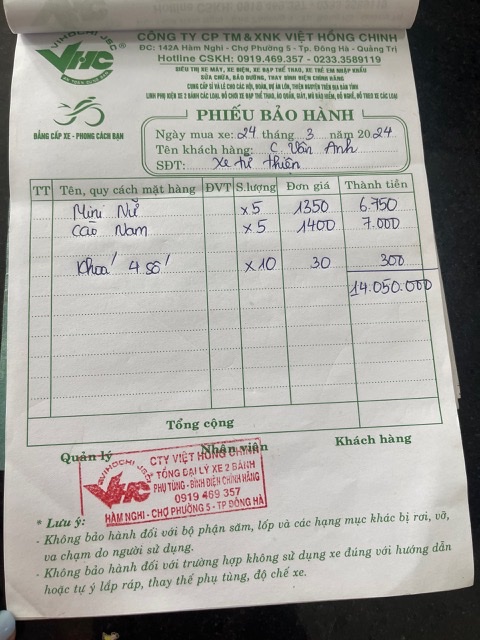 VIHOCHI JSC
VHC
CÔNG TY CP TM & XNK VIỆT HỒNG CHINH
ĐC: 142A Hàm Nghi - Chợ Phường 5 - Tp. Đông Hà - Quảng Trị
Hotline CSKH: 0919.469.357 - 0233.3589119
SIÊU THỊ XE MÁY, XE ĐIỆN, XE ĐẠP THỂ THAO, XE TRẺ EM NHẬP KHẨU
SỬA CHỮA, BẢO DƯỠNG, THAY BÌNH ĐIỆN CHÍNH HÃNG
CUNG CẤP SỈ VÀ LẺ CHO CÁC HỘI, ĐOÀN, DỰ ÁN LỚN, THIỆN NGUYỆN TRÊN ĐỊA BÀN TỈNH
LINH PHỤ KIỆN XE 2 BÁNH CÁC LOẠI, ĐỒ CHƠI XE ĐẠP THỂ THAO, ÁO QUẦN, GIÀY, MŨ BẢO HIỂM, ĐỒ NGHỀ, HỒ TREO XE CÁC LOẠI
ĐẲNG CẤP XE - PHONG CÁCH BẠN
PHIẾU BẢO HÀNH
Ngày mua xe: 24 tháng 3 năm 2024
Tên khách hàng: C. Vân Anh
SĐT: Xe từ thiện
TT Tên, quy cách mặt hàng ĐVT S.lượng Đơn giá Thành tiền
Mini Nữ x5 1350 6.750
Cào Nam x5 1400 7.000
Khoá 4 số x10 30 300
14.050.000
Tổng cộng
Quản lý Nhân viên Khách hàng
VIHOCHI JSC
VHC
CTY VIỆT HỒNG CHINH
TỔNG ĐẠI LÝ XE 2 BÁNH
PHỤ TÙNG - BÌNH ĐIỆN CHÍNH HÃNG
0919 469 357
HÀM NGHI - CHỢ PHƯỜNG 5 - TP ĐÔNG HÀ
* Lưu ý:
- Không bảo hành đối với bộ phận săm, lốp và các hạng mục khác bị rơi, vỡ,
va chạm do người sử dụng.
- Không bảo hành đối với trường hợp không sử dụng xe đúng với hướng dẫn
hoặc tự ý lắp ráp, thay thế phụ tùng, độ chế xe.